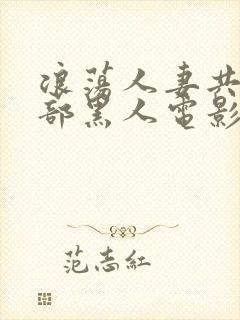 浪蕩人妻共
部黑人電影
范志紅